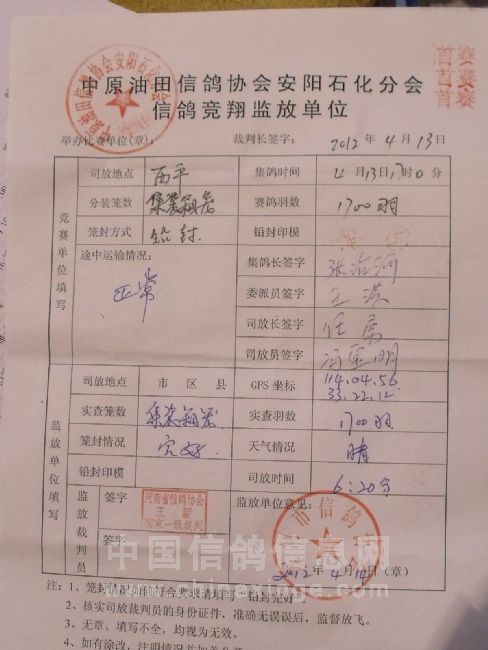 中原油田信鸽协会安阳石化分会
信鸽竞翔监放单位
举办比赛单位(章): 裁判长签字: 2012 年 4 月 13 日
竞赛单位填写
司放地点 西平 集鸽时间 4 月 13 日 17 时 0 分
分装笼数 集装箱笼 赛鸽羽数 1700羽
笼封方式 铅封. 铅封印模
途中运输情况: 正常 集鸽长签字
委派员签字 王洪
司放长签字
司放员签字
监放单位填写
司放地点 市 区 县 GPS 坐标 114.04.56 33.22.12
实查笼数 集装箱笼 实查羽数 1700羽
笼封情况 完好 天气情况 晴
铅封印模 司放时间 6:20分
监放裁判员 签字 河南省信鸽协会 王新 国家一级裁判 监放单位意见:
签字
市信鸽
2012 年 4 月 14 日 (章)
中国信鸽信息网
www.chinaxinge.com
注: 1、笼封情况如符合要求请填写"铅封完好"
2、核实司放裁判员的身份证件,准确无误后,监督放飞。
3、无章、填写不全,均视为无效。
4、如有涂改,注明情况并加盖公章